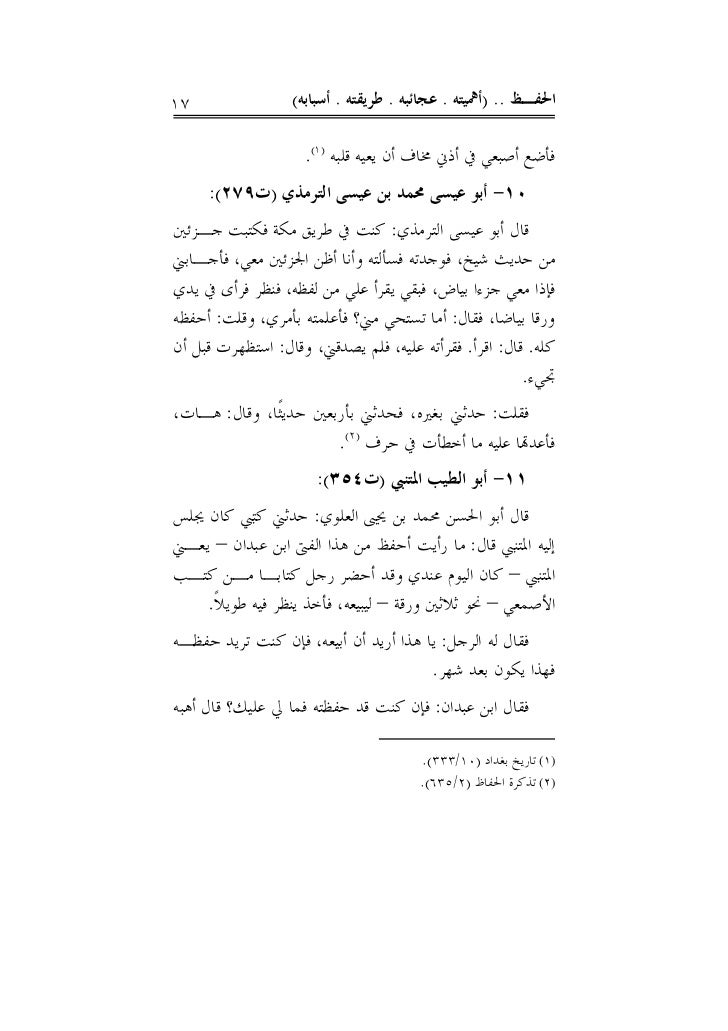 الحفـــظ .. (أهميته . عجائبه . طريقته . أسبابه) ١٧
فأضع أصبعي في أذني مخاف أن يعيه قلبه (١).
١٠- أبو عيسى محمد بن عيسى الترمذي (ت٢٧٩):
قال أبو عيسى الترمذي: كنت في طريق مكة فكتبت جـــزئين
من حديث شيخ، فوجدته فسألته وأنا أظن الجزئين معي، فأجـــابني
فإذا معي جزءا بياض، فبقي يقرأ علي من لفظه، فنظر فرأى في يدي
ورقا بياضا، فقال: أما تستحي مني؟ فأعلمته بأمري، وقلت: أحفظه
كله. قال: اقرأ. فقرأته عليه، فلم يصدقني، وقال: استظهرت قبل أن
تجيء.
فقلت: حدثني بغيره، فحدثني بأربعين حديثًا، وقال: هـــات،
فأعدتها عليه ما أخطأت في حرف (٢).
١١- أبو الطيب المتنبي (ت٣٥٤):
قال أبو الحسن محمد بن يحيى العلوي: حدثني كتبي كان يجلس
إليه المتنبي قال: ما رأيت أحفظ من هذا الفتى ابن عبدان – يعـــني
المتنبي – كان اليوم عندي وقد أحضر رجل كتابـــا مـــن كتـــب
الأصمعي – نحو ثلاثين ورقة – ليبيعه، فأخذ ينظر فيه طويلاً.
فقال له الرجل: يا هذا أريد أن أبيعه، فإن كنت تريد حفظـــه
فهذا يكون بعد شهر.
فقال ابن عبدان: فإن كنت قد حفظته فما لي عليك؟ قال أهبه
(١) تاريخ بغداد (٣٣٣/١٠).
(٢) تذكرة الحفاظ (٦٣٥/٢).